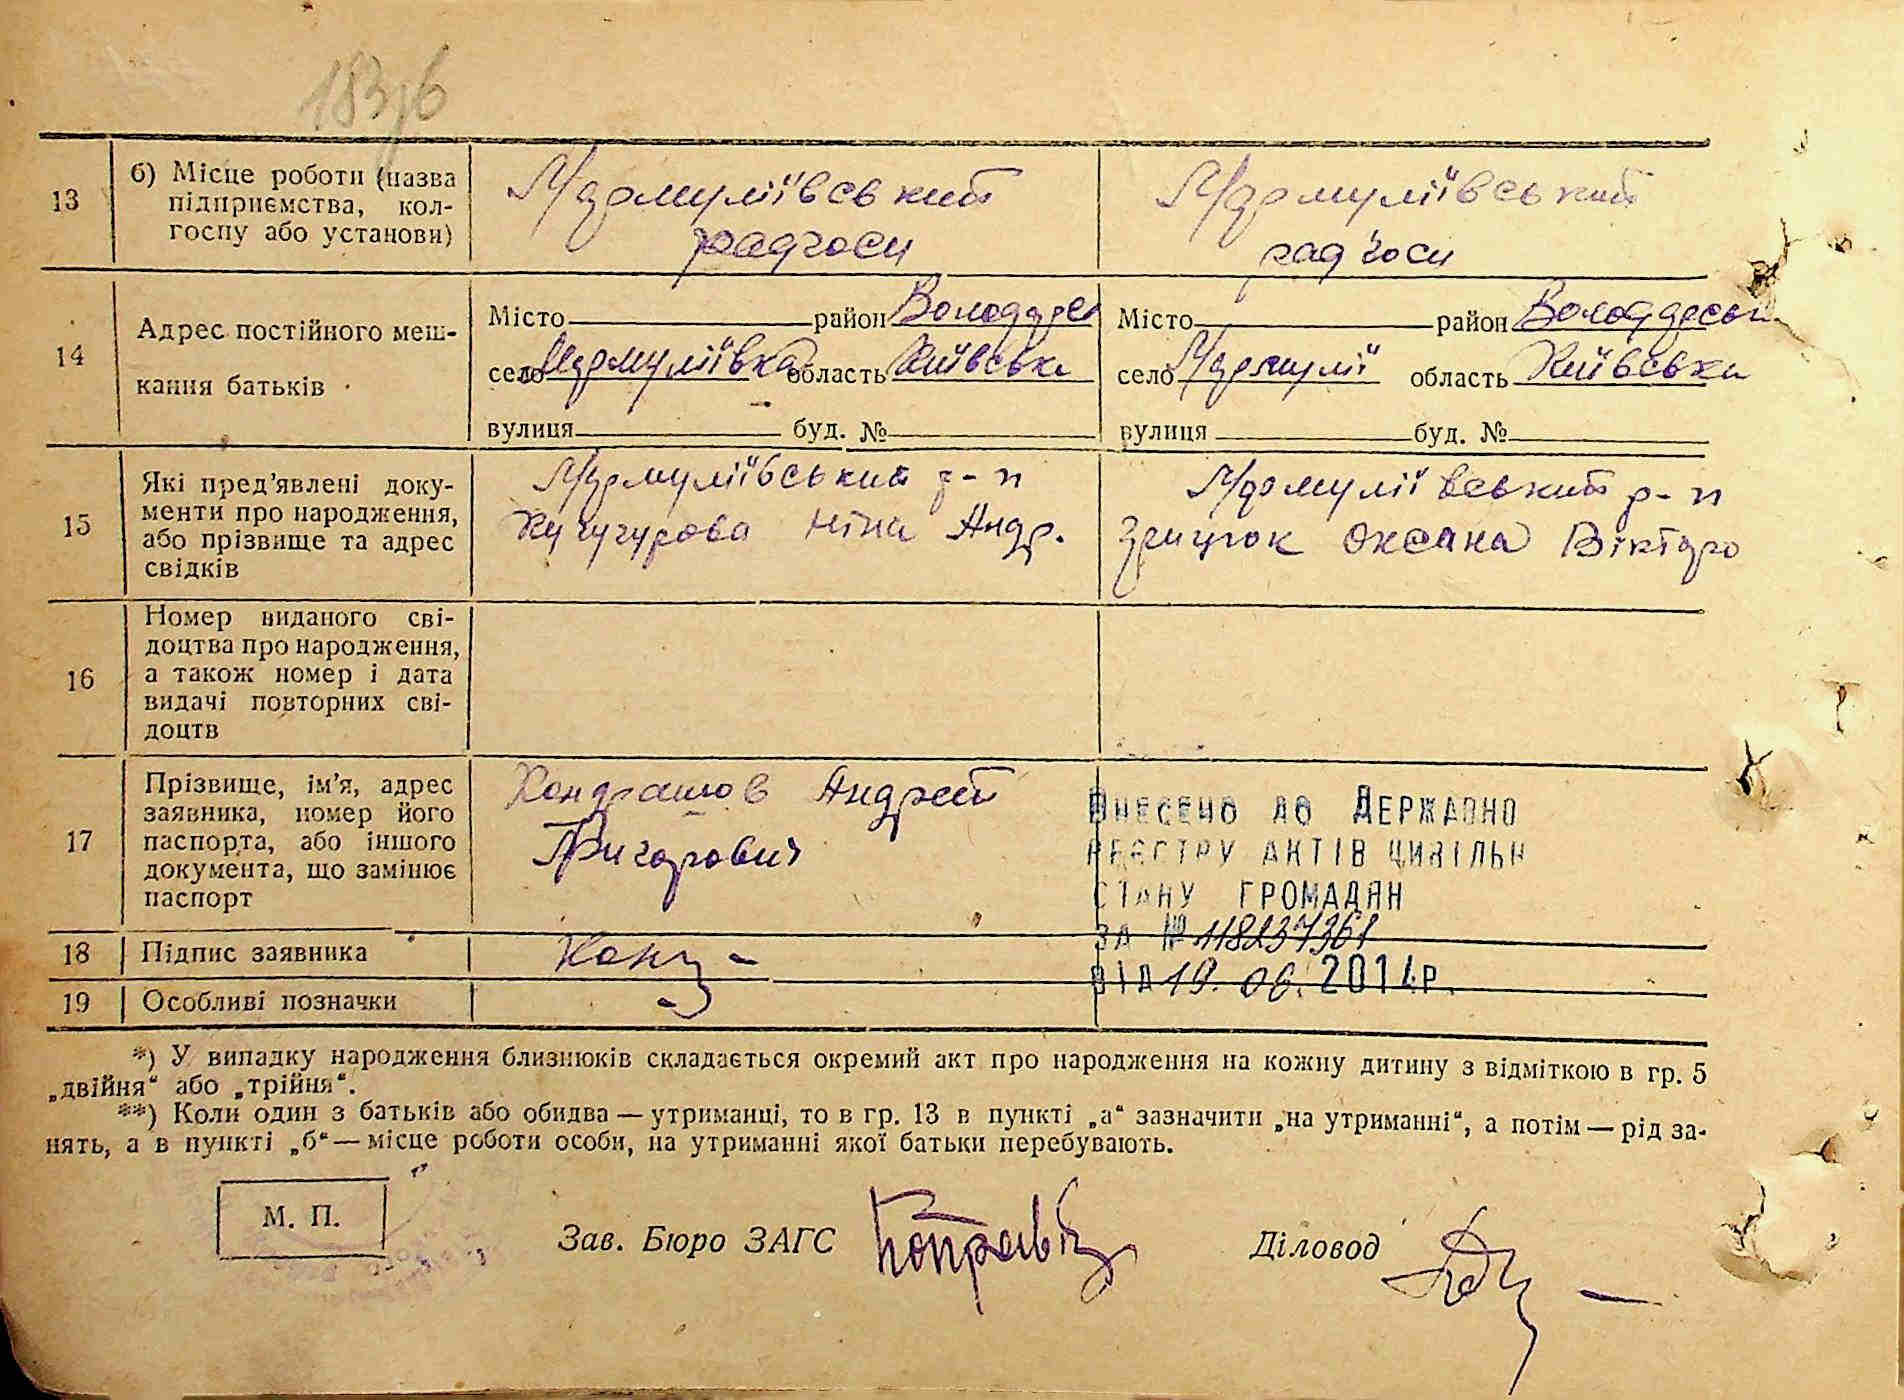 183/6
13 б) Місце роботи (назва підприємства, колгоспу або установи)
Мармуліївський радгосп
Мармуліївський радгосп
14 Адрес постійного мешкання батьків
Місто район Володарс
село Мармуліївка область Київська
вулиця буд. №
Місто район Володарськ
село Мармулії область Київська
вулиця буд. №
15 Які пред’явлені документи про народження, або прізвище та адрес свідків
Мармуліївський р-п
Кучугурова Ніна Андр.
Мармуліївський р-п
Грицюк Оксана Віктаро
16 Номер виданого свідоцтва про народження, а також номер і дата видачі повторних свідоцтв
17 Прізвище, ім’я, адрес заявника, номер його паспорта, або іншого документа, що замінює паспорт
Кондрашов Андрей
Григорович
ВНЕСЕНО ДО ДЕРЖАВНО
РЕЄСТРУ АКТІВ ЦИВІЛЬН
СТАНУ ГРОМАДЯН
ЗА № 118237361
ВІД 19. 06. 2014 Р.
18 Підпис заявника
19 Особливі позначки
*) У випадку народження близнюків складається окремий акт про народження на кожну дитину з відміткою в гр. 5
„двійня“ або „трійня“.
**) Коли один з батьків або обидва — утриманці, то в гр. 13 в пункті „а“ зазначити „на утриманні“, а потім — рід за-
нять, а в пункті „б“ — місце роботи особи, на утриманні якої батьки перебувають.
М. П.
Зав. Бюро ЗАГС
Діловод